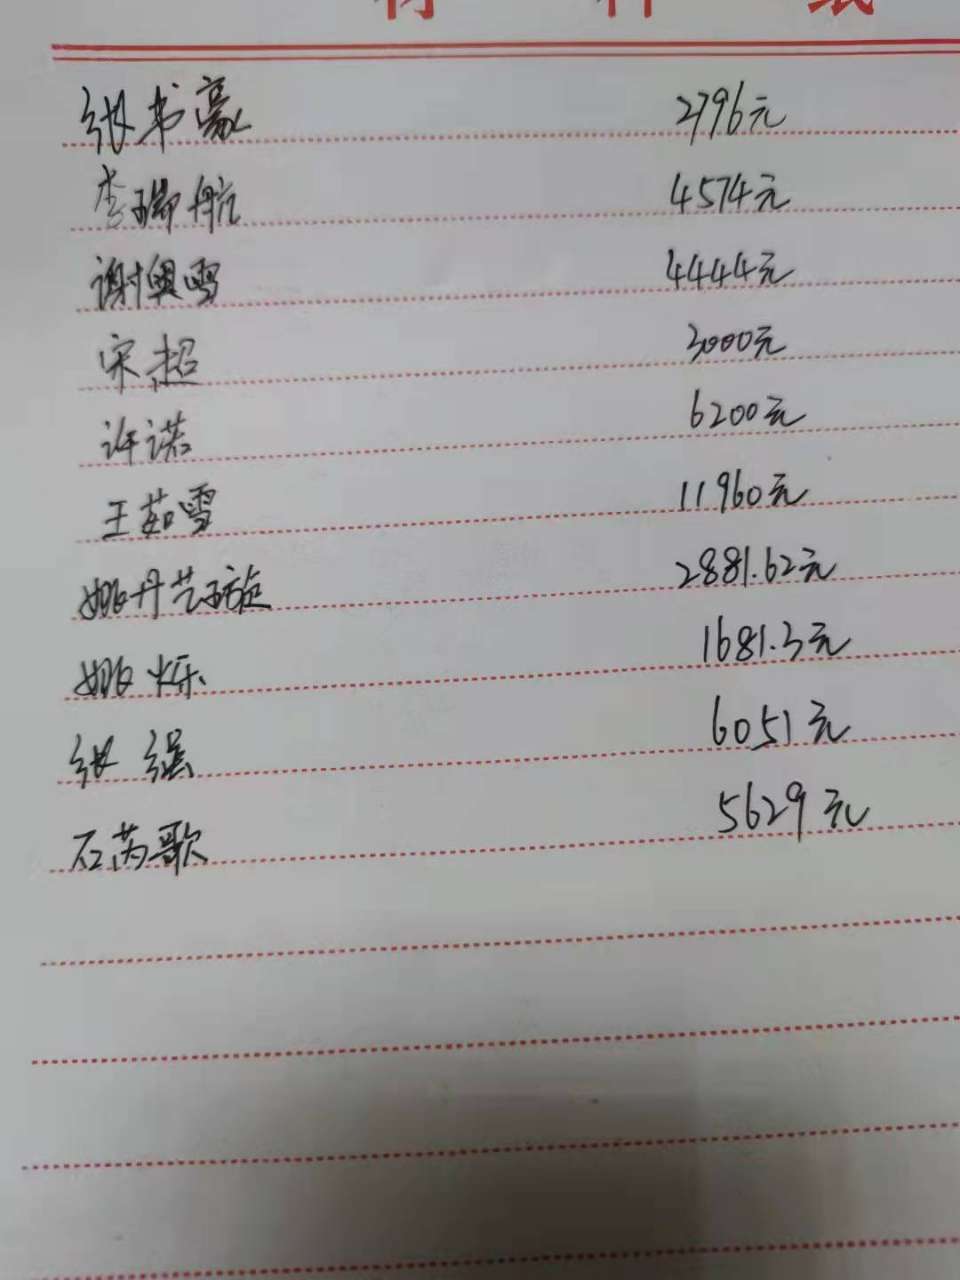 材料纸
张书豪 2796元
李瑞航 4574元
谢奥雪 4444元
宋超 3000元
许诺 6200元
王茹雪 11960元
姚丹艺璇 2881.62元
姚烁 1681.3元
张强 6051元
石芮歌 5629元